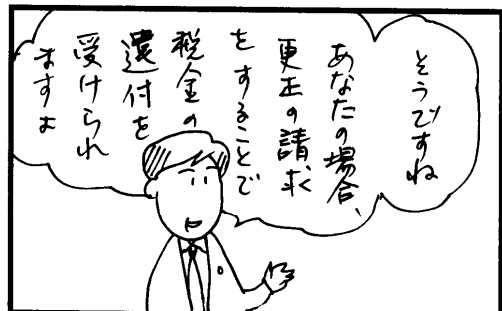 そうですね
あなたの場合、
更正の請求
をすることで
税金の
還付を
受けられ
ますよ